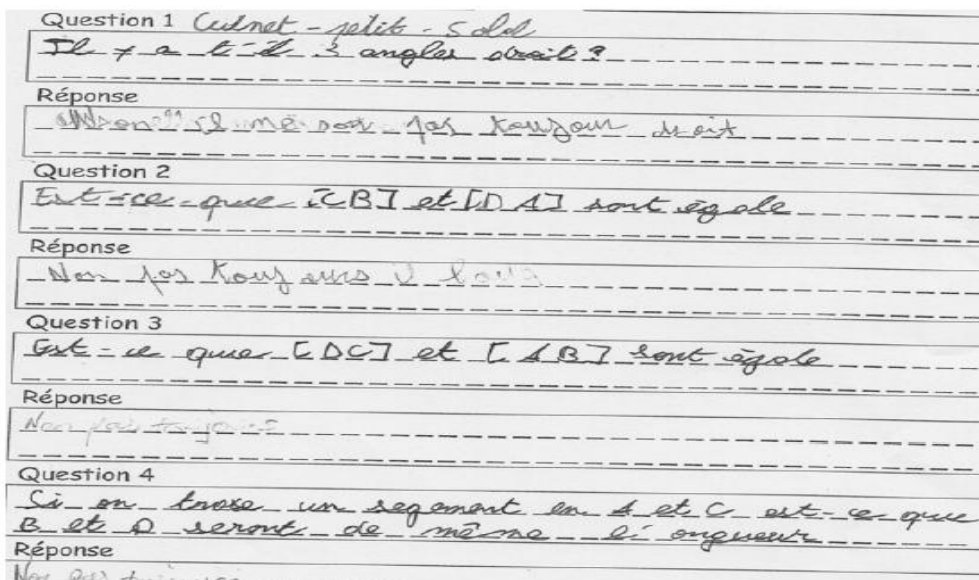 Question 1 Culnet - petit - Sold
Il y a t-il 3 angles droit ?
Réponse
Non il me son pas toujour droit
Question 2
Est-ce-que [CB] et [DA] sont égale
Réponse
Non pas toujours il
Question 3
Est-ce que [DC] et [AB] sont égale
Réponse
Non pas toujours
Question 4
Si on trase un segement en A et C est-ce que
B et D seront de même longueur
Réponse
Non pas